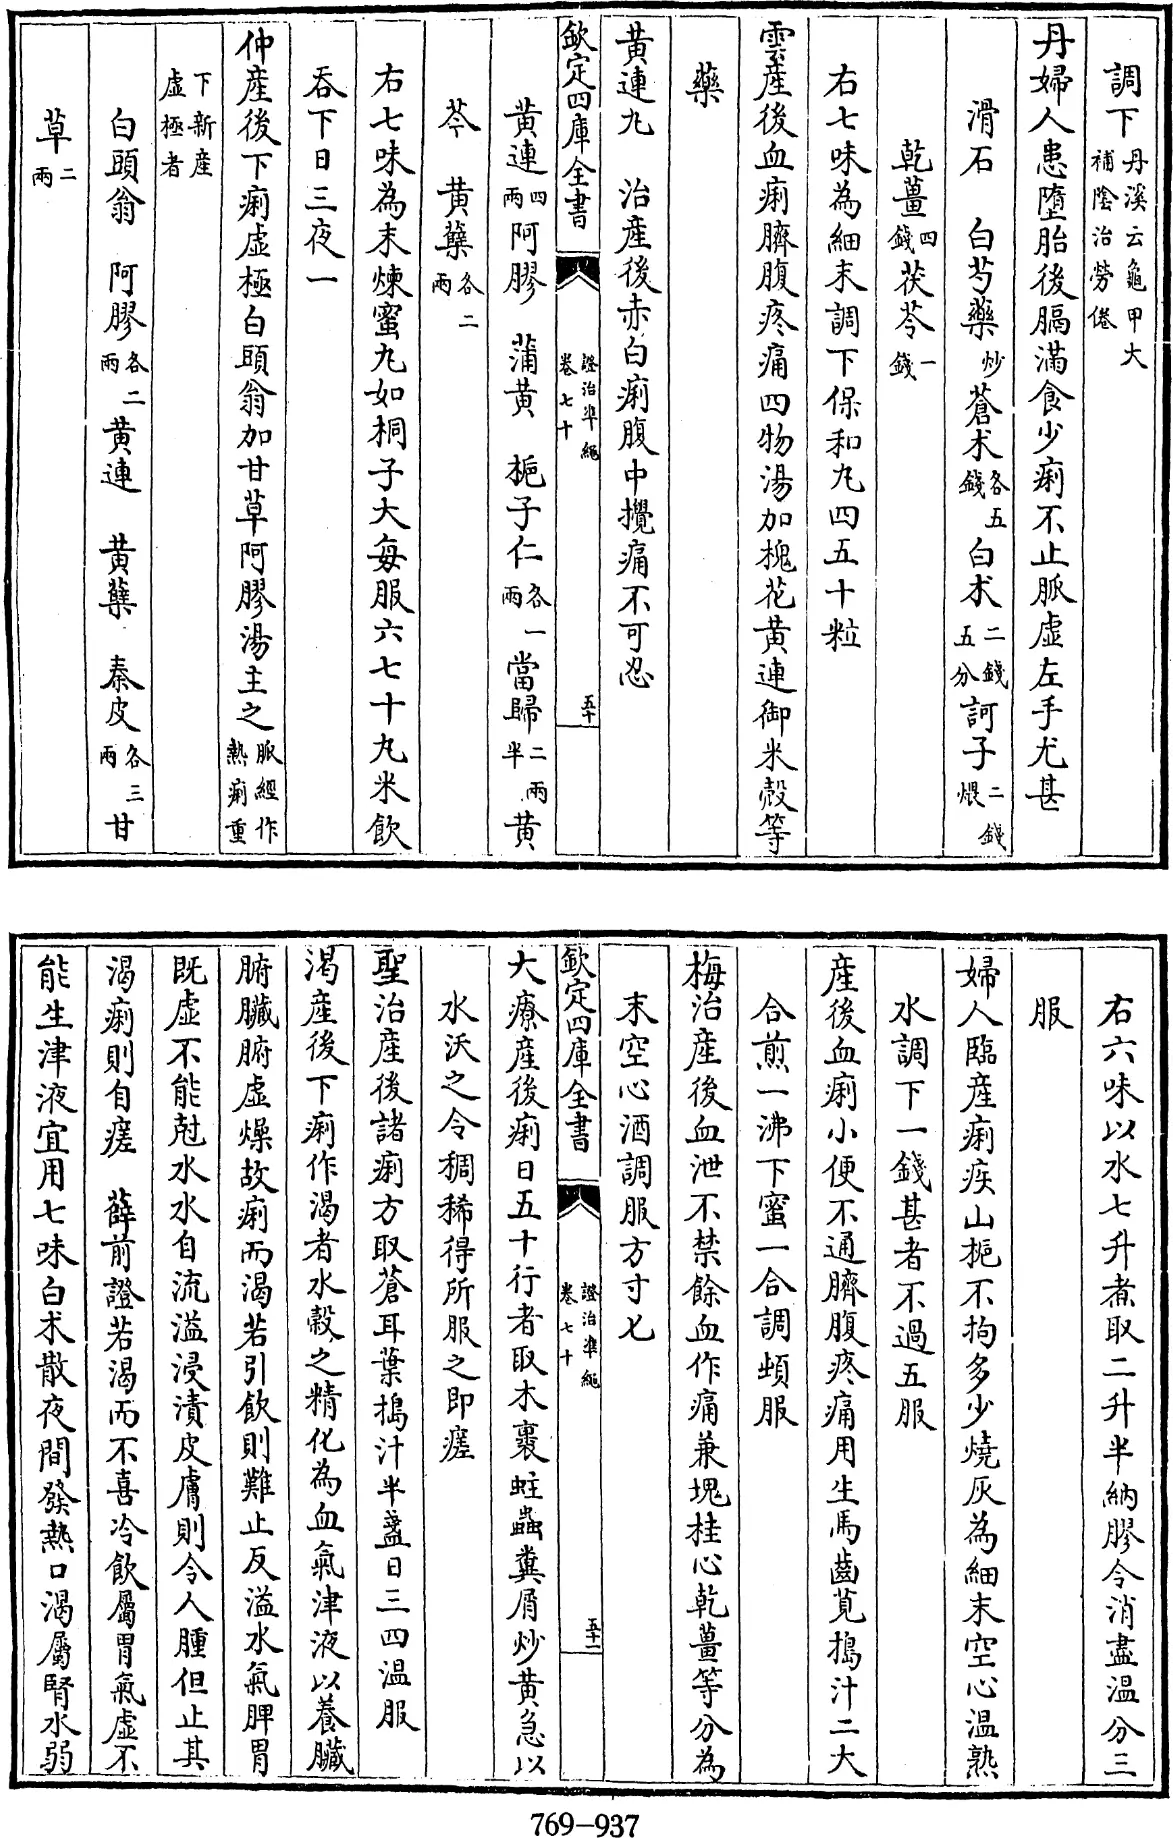 調下丹溪云龜甲大補陰治勞倦
丹婦人患墮胎後膈滿食少痢不止脈虛左手尤甚
滑石　白芍藥炒蒼朮各五錢白朮二錢五分訶子二錢煨
乾薑四錢茯苓一錢
右七味為細末調下保和丸四五十粒
雲産後血痢臍腹疼痛四物湯加槐花黃連御米殼等
藥
黃連丸　治産後赤白痢腹中攪痛不可忍
欽定四庫全書　證治準繩卷七十　五十
黃連四兩阿膠　蒲黃　梔子仁各一兩當歸二兩半黃
芩　黃蘗各二兩
右七味為末煉蜜丸如桐子大每服六七十丸米飲
吞下日三夜一
仲産後下痢虛極白頭翁加甘草阿膠湯主之脈經作熱痢重
下新産虛極者
白頭翁　阿膠各二兩黃連　黃蘗　秦皮各三兩甘
草二兩
右六味以水七升煮取二升半納膠令消盡温分三
服
婦人臨産痢疾山梔不拘多少燒灰為細末空心温熟
水調下一錢甚者不過五服
産後血痢小便不通臍腹疼痛用生馬齒莧搗汁二大
合煎一沸下蜜一合調頓服
梅治産後血泄不禁餘血作痛兼塊桂心乾薑等分為
末空心酒調服方寸匕
欽定四庫全書　證治準繩卷七十　五十一
大療産後痢日五十行者取木裏蛀蟲糞屑炒黃急以
水沃之令稠稀得所服之即瘥
聖治産後諸痢方取蒼耳葉搗汁半盞日三四温服
渴産後下痢作渴者水穀之精化為血氣津液以養臟
腑臟腑虛燥故痢而渴若引飲則難止反溢水氣脾胃
既虛不能尅水水自流溢浸漬皮膚則令人腫但止其
渴痢則自瘥　薛前證若渴而不喜冷飲屬胃氣虛不
能生津液宜用七味白朮散夜間發熱口渴屬腎水弱
769-937